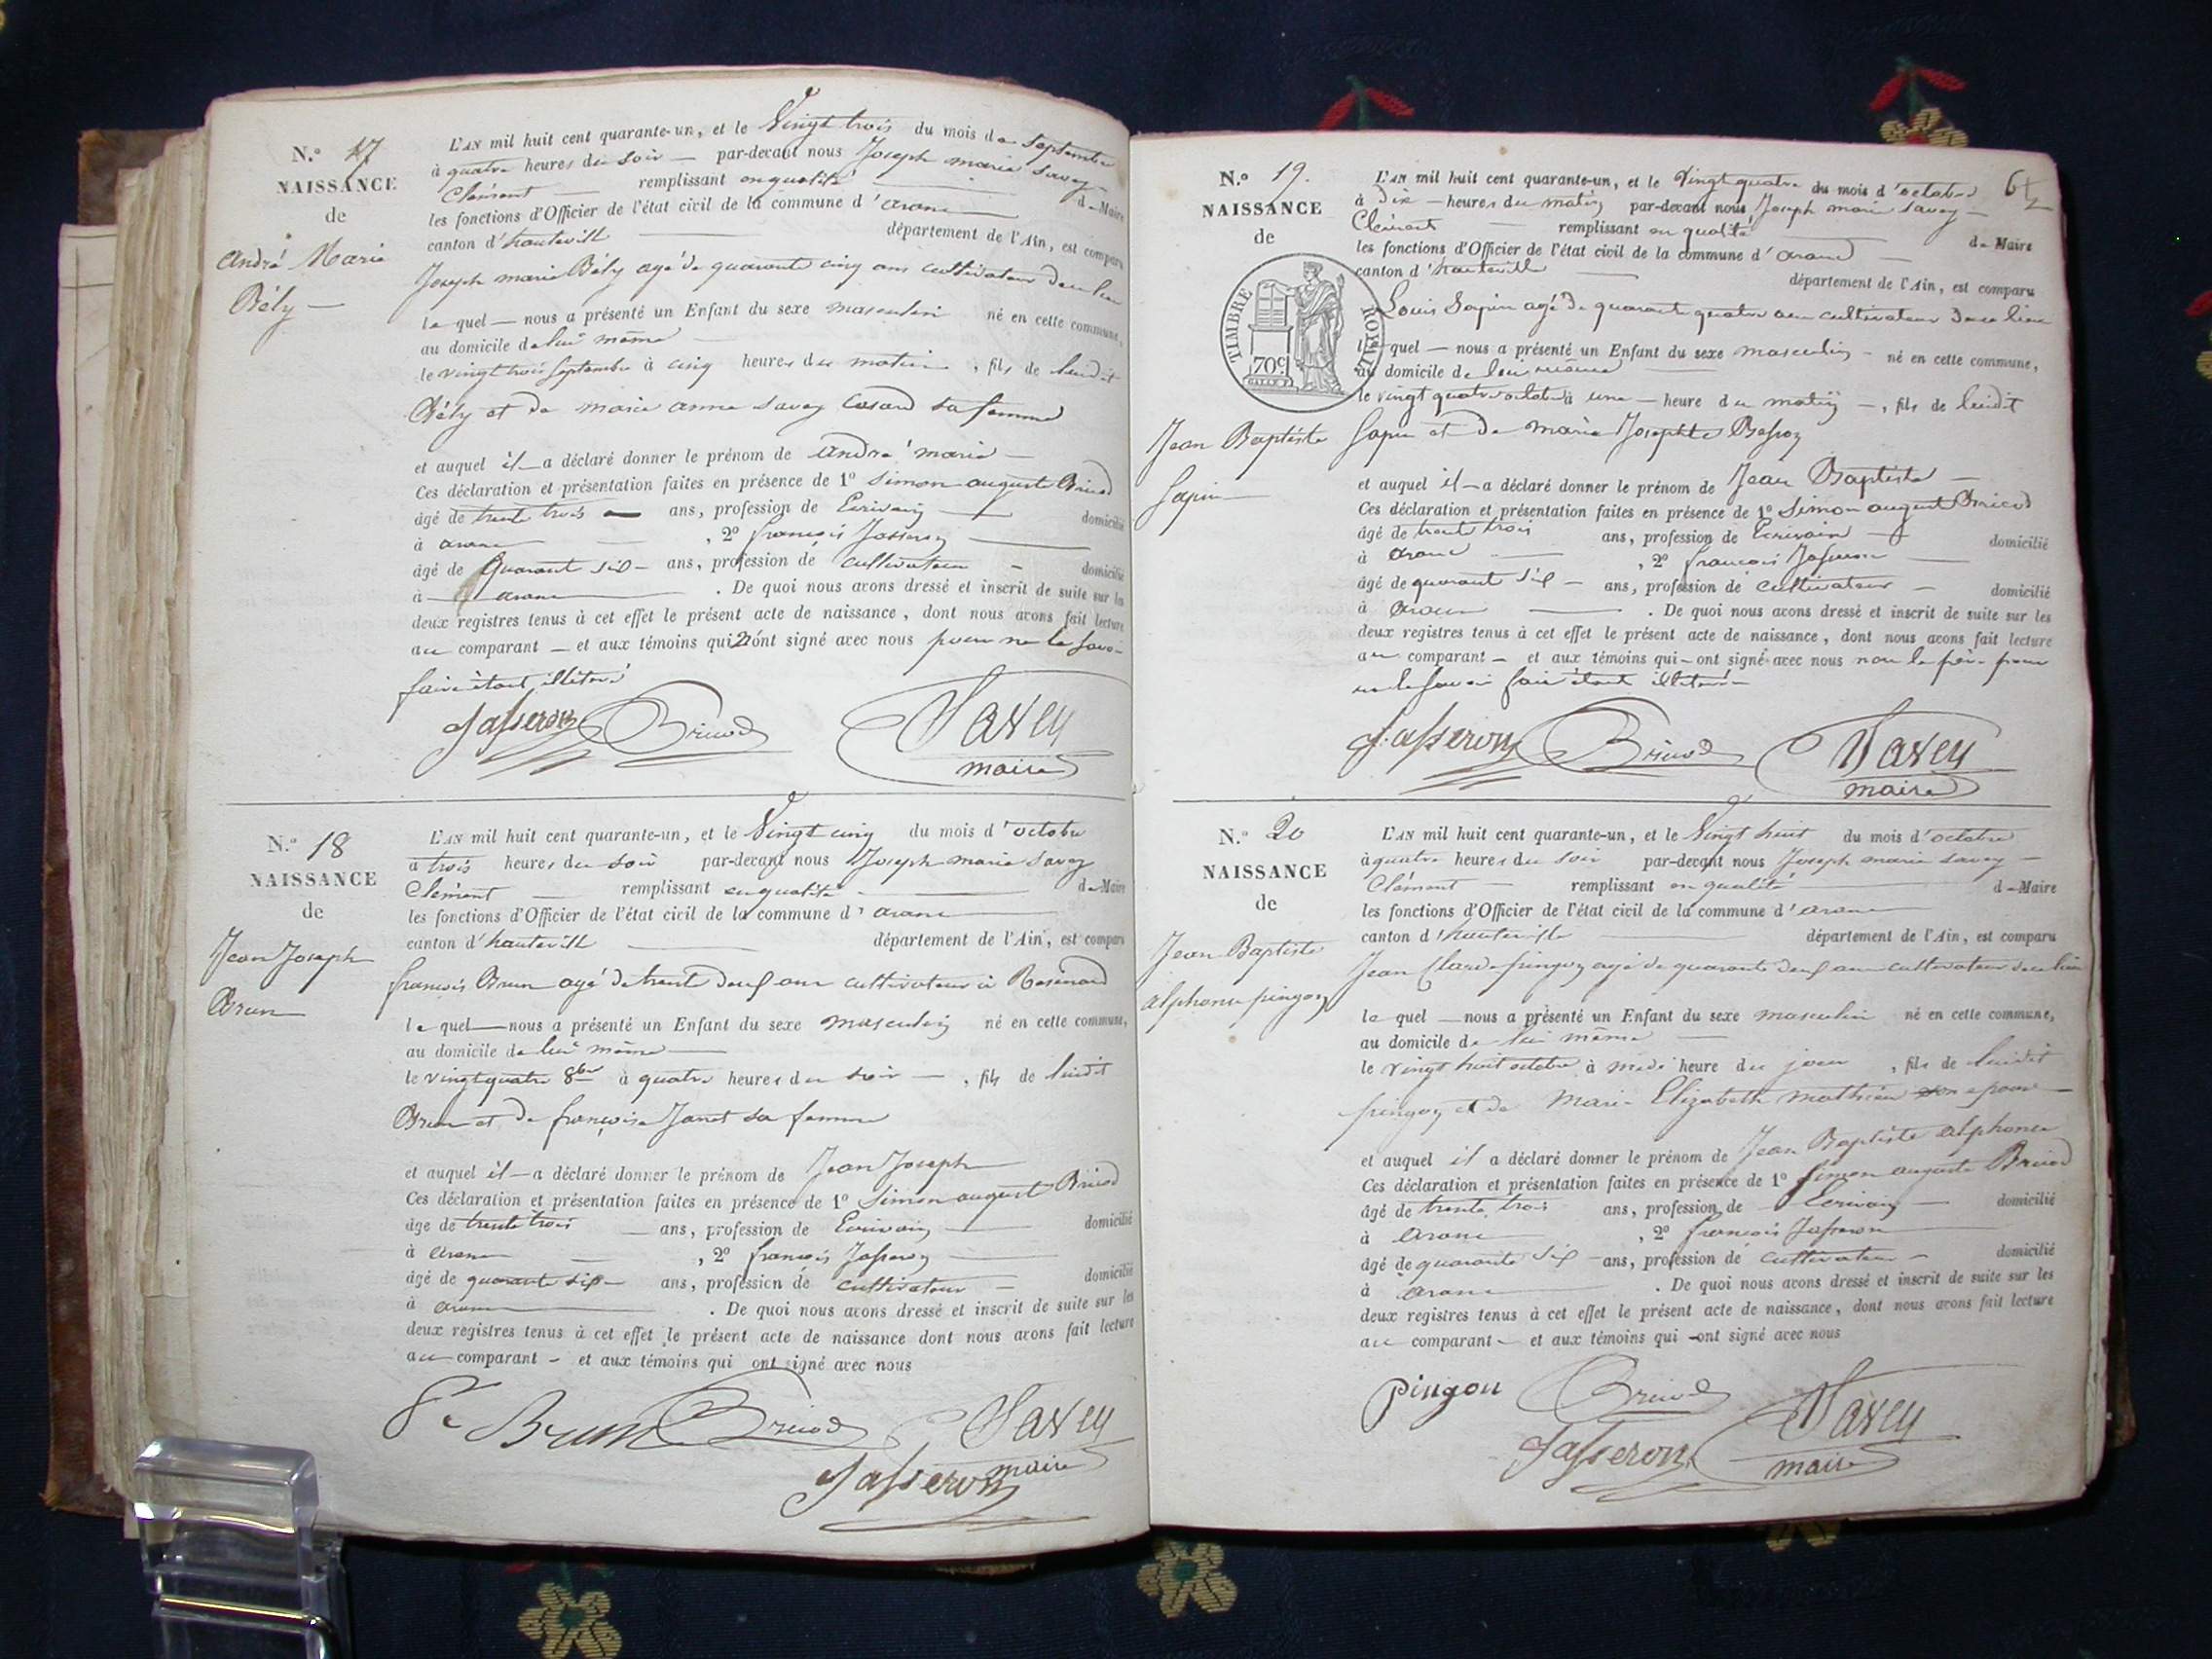 N.º 17
NAISSANCE
de
André Marie
Bély
L'AN mil huit cent quarante-un, et le Vingt trois du mois de septembre
à quatre heures du soir par-devant nous Joseph marie Savey
Clément remplissant en qualité de Maire
les fonctions d'Officier de l'état civil de la commune d'arane
canton d'hauteville département de l'Ain, est comparu
Joseph marie Bély agé de quarante cinq ans cultivateur de ce lieu
le quel nous a présenté un Enfant du sexe masculin né en cette commune,
au domicile de lui même
le vingt trois septembre à cinq heures du matin, fils de luidit
Bély et de marie anne Savey sa femme
et auquel il a déclaré donner le prénom de andré marie
Ces déclaration et présentation faites en présence de 1º Simon auguste Bricod
âgé de trente trois ans, profession de Ecrivain domicilié
à arane, 2º françois Jasseron
âgé de Quarant six ans, profession de cultivateur domicilié
à arane. De quoi nous avons dressé et inscrit de suite sur les
deux registres tenus à cet effet le présent acte de naissance, dont nous avons fait lecture
au comparant et aux témoins qui ont signé avec nous pour ne le savoir
faire étant illétré
Jasseron Bricod Savey
maire
N.º 18
NAISSANCE
de
Jean Joseph
Brun
L'AN mil huit cent quarante-un, et le Vingt cinq du mois d'octobre
à trois heures du soir par-devant nous Joseph marie Savey
Clément remplissant en qualité de Maire
les fonctions d'Officier de l'état civil de la commune d'arane
canton d'hauteville département de l'Ain, est comparu
françois Brun agé de trente deux ans cultivateur à Resinand
le quel nous a présenté un Enfant du sexe masculin né en cette commune,
au domicile de lui même
le vingt quatre 8bre à quatre heures du soir, fils de luidit
Brun et de françoise Janet sa femme
et auquel il a déclaré donner le prénom de Jean Joseph
Ces déclaration et présentation faites en présence de 1º Simon august Bricod
âgé de trente trois ans, profession de Ecrivain domicilié
à arane, 2º françois Jasseron
âgé de quarante six ans, profession de cultivateur domicilié
à arane. De quoi nous avons dressé et inscrit de suite sur les
deux registres tenus à cet effet le présent acte de naissance dont nous avons fait lecture
au comparant et aux témoins qui ont signé avec nous
Brun Bricod Savey
Jasseron maire
N.º 19.
NAISSANCE
de
TIMBRE ROYAL
70c
Jean Baptiste
Sapin
L'AN mil huit cent quarante-un, et le Vingt quatre du mois d'octobre
à Dix heures du matin par-devant nous Joseph marie Savey
Clément remplissant en qualité de Maire
les fonctions d'Officier de l'état civil de la commune d'arane
canton d'hauteville département de l'Ain, est comparu
Louis Sapin agé de quarante quatre ans cultivateur de ce lieu
le quel nous a présenté un Enfant du sexe masculin né en cette commune,
au domicile de lui même
le vingt quatre octobre à une heure du matin, fils de luidit
Sapin et de marie Josephte
et auquel il a déclaré donner le prénom de Jean Baptiste
Ces déclaration et présentation faites en présence de 1º Simon august Bricod
âgé de trente trois ans, profession de Ecrivain domicilié
à arane, 2º françois Jasseron
âgé de quarant six ans, profession de cultivateur domicilié
à arane. De quoi nous avons dressé et inscrit de suite sur les
deux registres tenus à cet effet le présent acte de naissance, dont nous avons fait lecture
au comparant et aux témoins qui ont signé avec nous non le père pour
ne le savoir faire étant illétré
Jasseron Bricod Savey
maire
N.º 20
NAISSANCE
de
Jean Baptiste
alphonse pingon
L'AN mil huit cent quarante-un, et le Vingt huit du mois d'octobre
à quatre heures du soir par-devant nous Joseph marie Savey
Clément remplissant en qualité de Maire
les fonctions d'Officier de l'état civil de la commune d'arane
canton d'hauteville département de l'Ain, est comparu
Jean Claude pingon agé de quarante deux ans cultivateur de ce lieu
le quel nous a présenté un Enfant du sexe masculin né en cette commune,
au domicile de lui même
le vingt huit octobre à midi heure du jour, fils de luidit
pingon et de Marie Elizabeth mathieu son epouse
et auquel il a déclaré donner le prénom de Jean Baptiste alphonse
Ces déclaration et présentation faites en présence de 1º Simon auguste Bricod
âgé de trente trois ans, profession de Ecrivain domicilié
à arane, 2º françois Jasseron
âgé de quarante six ans, profession de cultivateur domicilié
à arane. De quoi nous avons dressé et inscrit de suite sur les
deux registres tenus à cet effet le présent acte de naissance, dont nous avons fait lecture
au comparant et aux témoins qui ont signé avec nous
pingon Bricod Savey
Jasseron maire